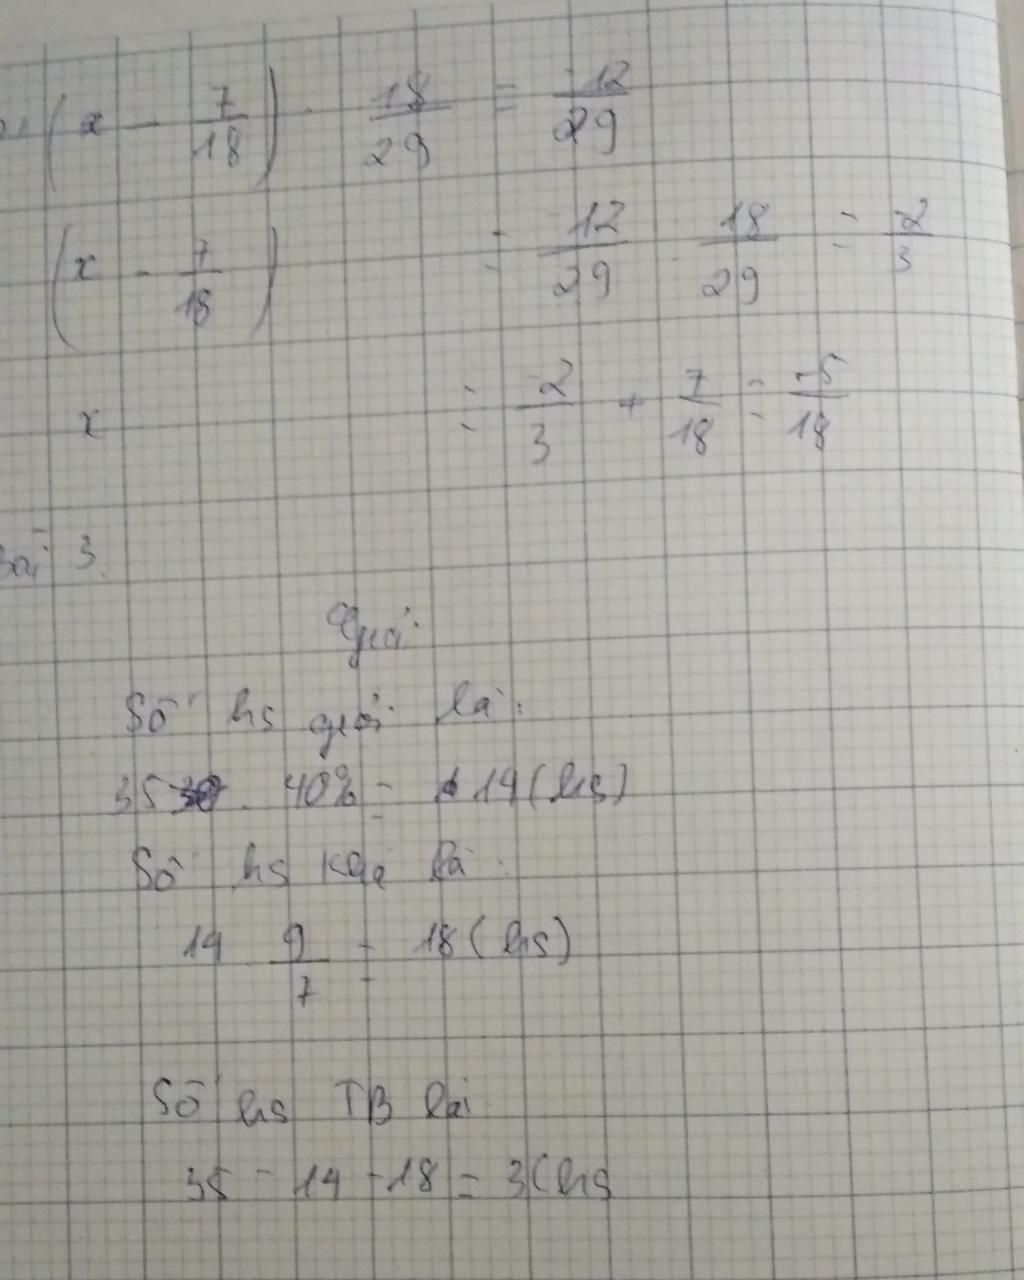 (x - 7/18) . 18/29 = -12/29
(x - 7/18) = -12/29 : 18/29 = -2/3
x = -2/3 + 7/18 = -5/18
Bài 3.
Giải
Số hs giỏi là:
35 . 40% = 14 (hs)
Số hs khá là:
14 . 9/7 = 18 (hs)
Số hs TB là:
35 - 14 - 18 = 3 (hs